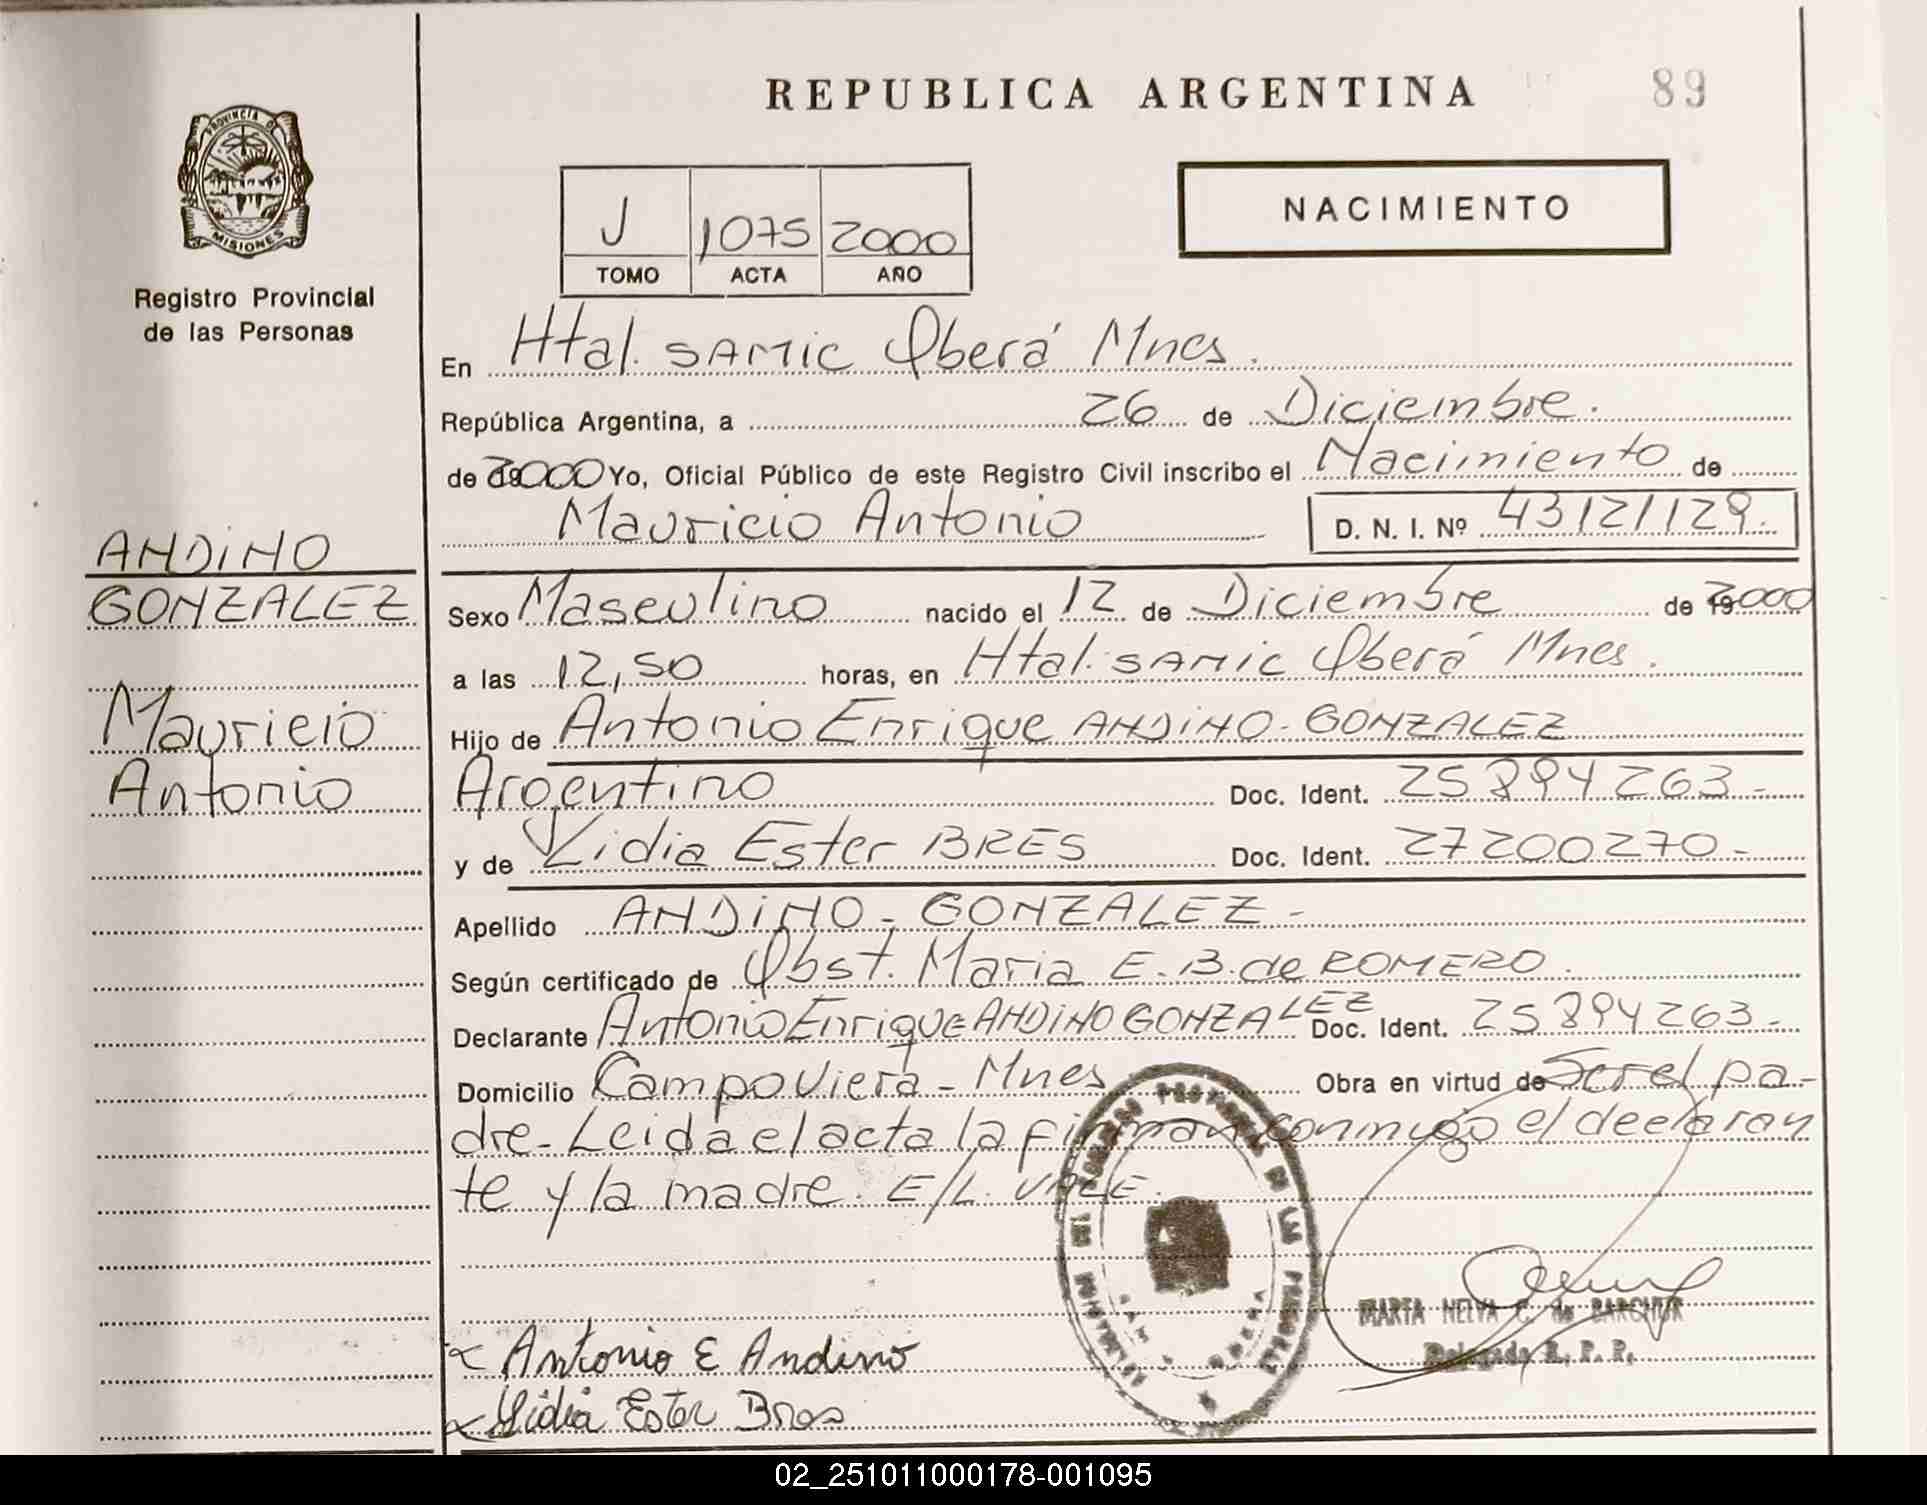 REPUBLICA ARGENTINA
89
PROVINCIA DE
MISIONES
Registro Provincial
de las Personas
J 1075 2000
TOMO ACTA AÑO
NACIMIENTO
En Htal. SAMIC Oberá Mnes.
República Argentina, a 26 de Diciembre.
de 2000 Yo, Oficial Público de este Registro Civil inscribo el Nacimiento de
Mauricio Antonio D. N. I. Nº 43121129.
ANDINO
GONZALEZ
Mauricio
Antonio
Sexo Masculino nacido el 12 de Diciembre de 2000
a las 12,50 horas, en Htal. SAMIC Oberá Mnes.
Hijo de Antonio Enrique ANDINO-GONZALEZ
Argentino Doc. Ident. 25894263-
y de Lidia Ester BRES Doc. Ident. 27200270-
Apellido ANDINO-GONZALEZ-
Según certificado de Obst. Maria E. B. de ROMERO.
Declarante Antonio Enrique ANDINO GONZALEZ Doc. Ident. 25894263-
Domicilio Campo Viera - Mnes Obra en virtud de Ser el pa-
dre- Leida el acta la firman conmigo el declaran
te y la madre. E/L. VALE.
MARTA NELVA C. de
Delegada R. P. P.
Antonio E Andino
Lidia Ester Bres
02_251011000178-001095